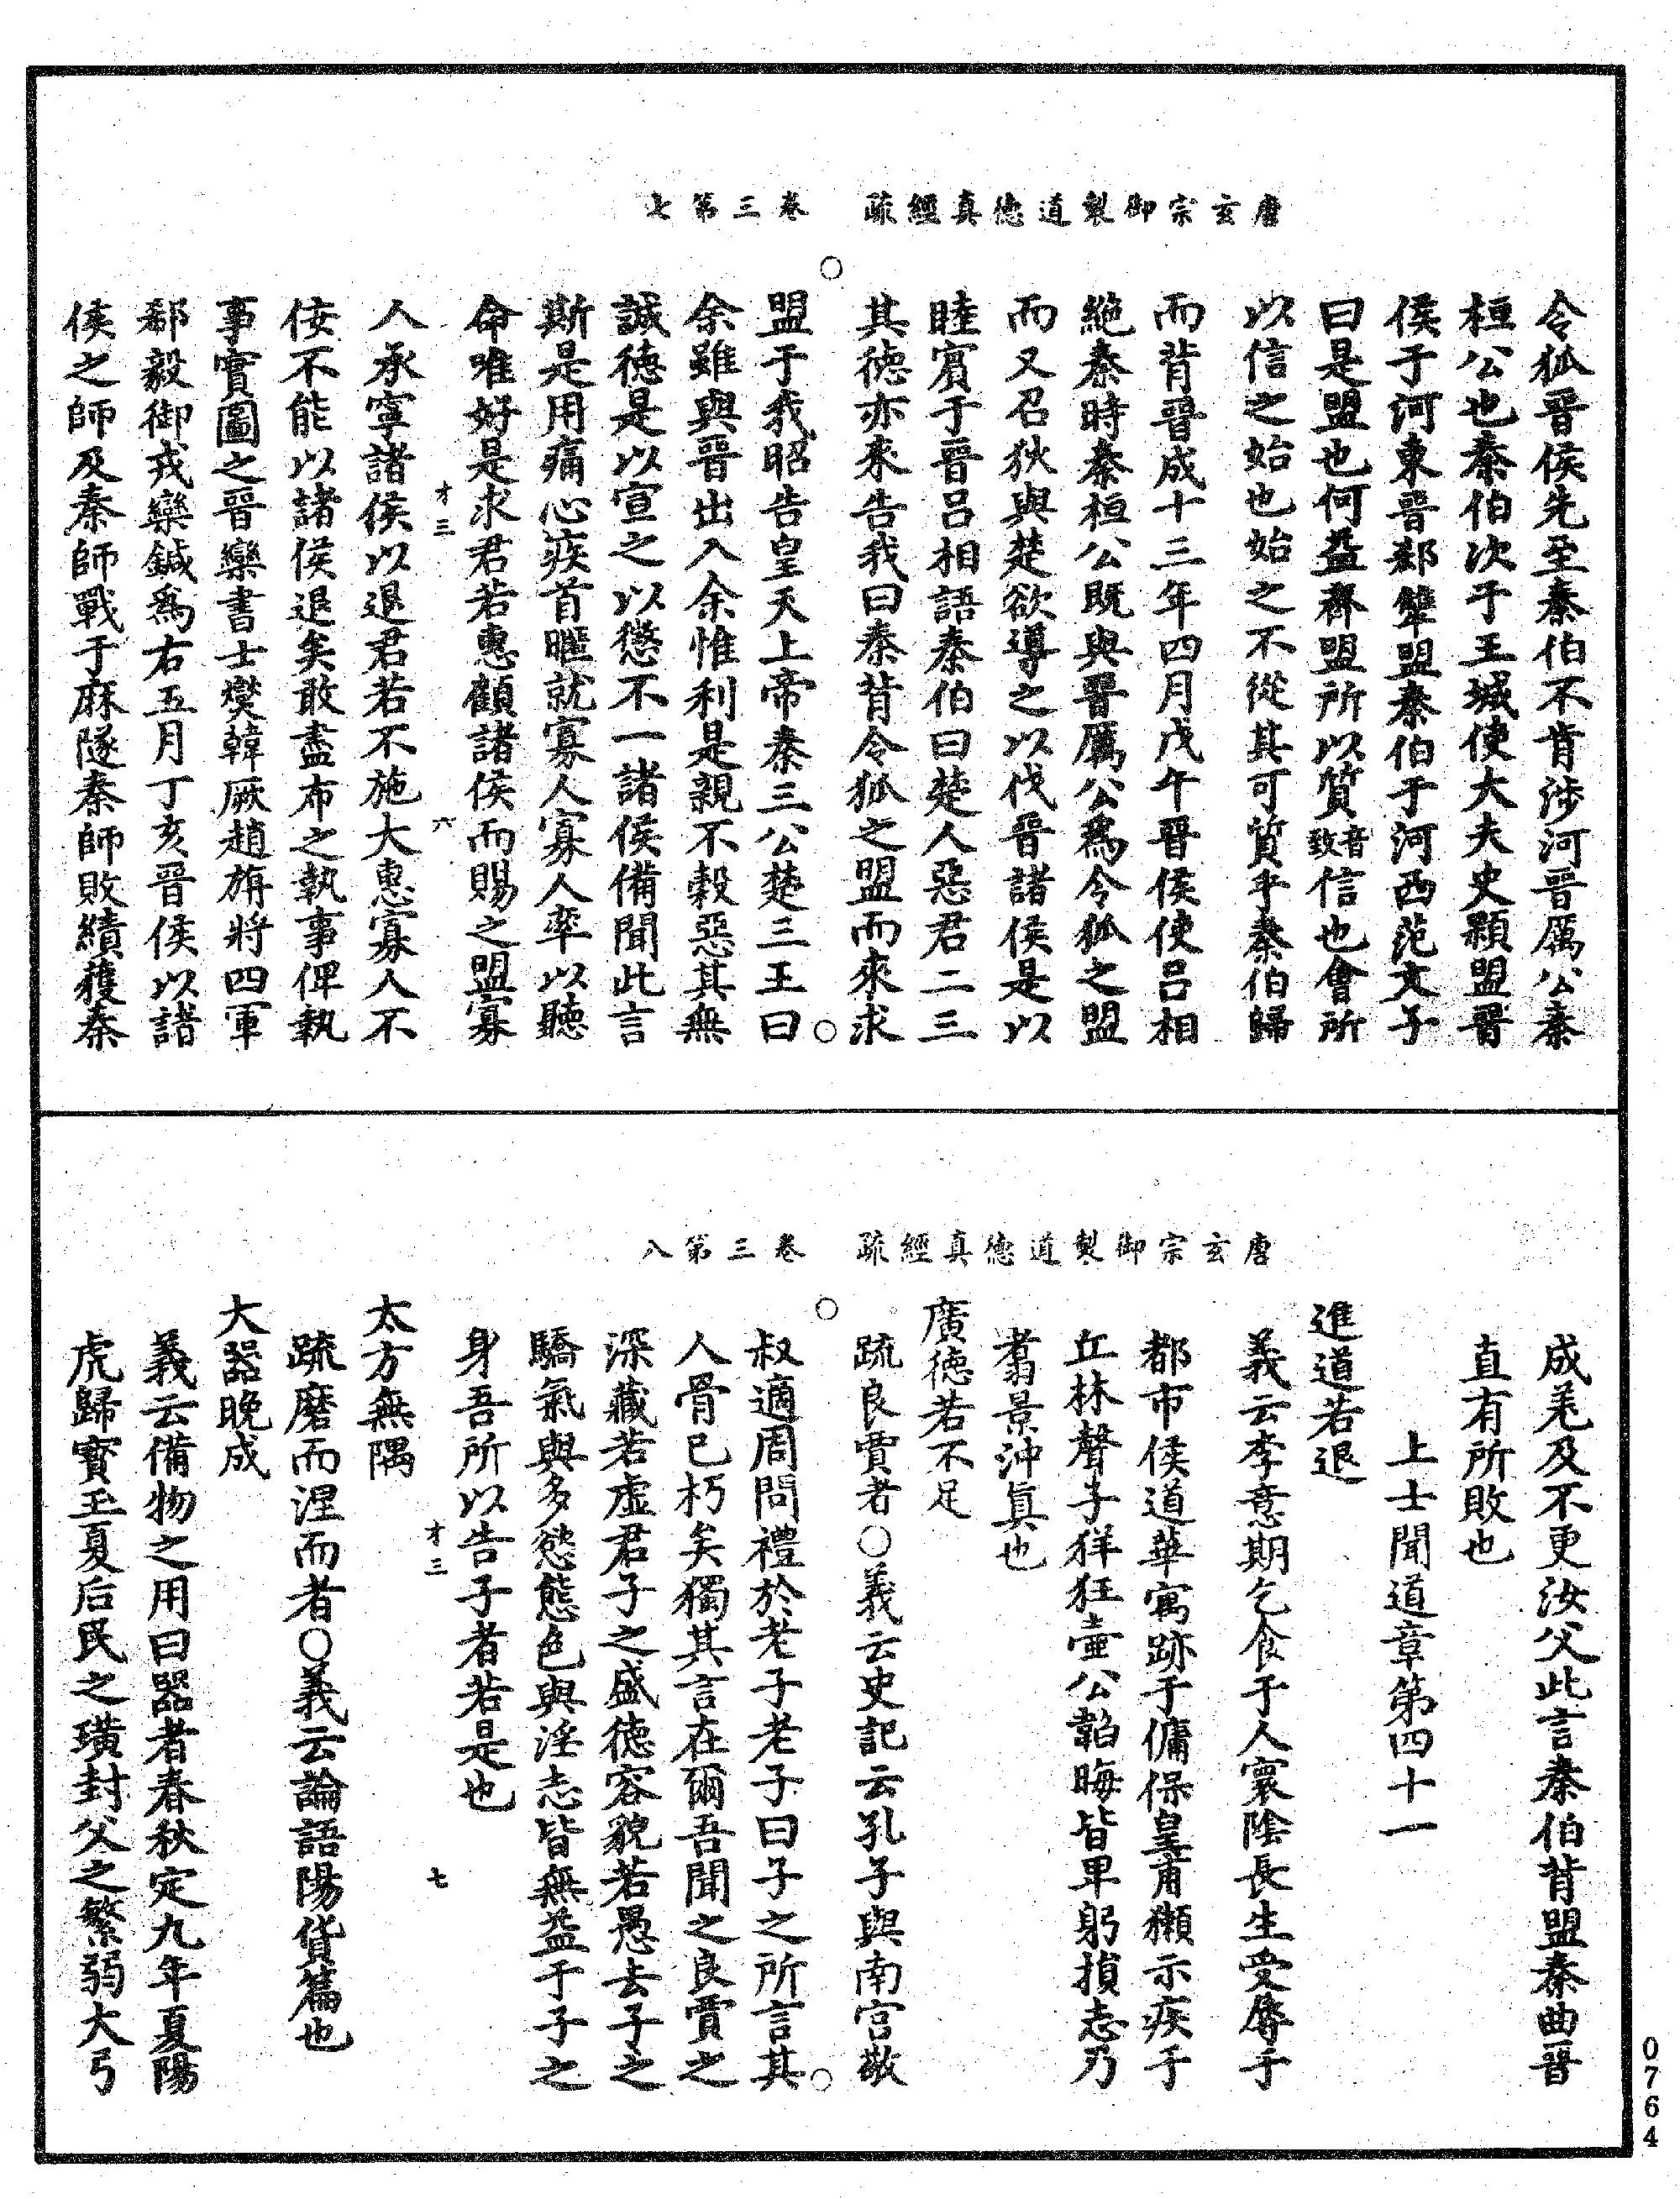 唐玄宗御製道德真經疏　卷三第七
令狐晉侯先至秦伯不肯涉河晉厲公秦
桓公也秦伯次于王城使大夫史顆盟晉
侯于河東晉郤犨盟秦伯于河西范文子
曰是盟也何益齊盟所以質音致信也會所
以信之始也始之不從其可質乎秦伯歸
而背晉成十三年四月戊午晉侯使呂相
絕秦時秦桓公既與晉厲公為令狐之盟
而又召狄與楚欲導之以伐晉諸侯是以
睦賓于晉呂相語秦伯曰楚人惡君二三
其德亦來告我曰秦背令狐之盟而來求
盟于我昭告皇天上帝秦三公楚三王曰
余雖與晉出入余惟利是親不穀惡其無
誠德是以宣之以懲不一諸侯備聞此言
斯是用痛心疾首暱就寡人寡人率以聽
命唯好是求君若惠顧諸侯而賜之盟寡
才三　六
人承寧諸侯以退君若不施大惠寡人不
佞不能以諸侯退矣敢盡布之執事俾執
事實圖之晉欒書士燮韓厥趙旃將四軍
郤毅御戎欒鍼為右五月丁亥晉侯以諸
侯之師及秦師戰于麻隧秦師敗績獲秦
唐玄宗御製道德真經疏　卷三第八
成差及不更汝父此言秦伯背盟秦曲晉
直有所敗也
上士聞道章第四十一
進道若退
義云李意期乞食于人寰陰長生受辱于
都市侯道華寓跡于傭保皇甫獺示疾于
丘林聲子徉狂壺公韜晦皆卑躬損志乃
翥景沖真也
廣德若不足
疏良賈者○義云史記云孔子與南宮敬
叔適周問禮於老子老子曰子之所言其
人骨已朽矣獨其言在爾吾聞之良賈之
深藏若虛君子之盛德容貌若愚去子之
驕氣與多慾態色與淫志皆無益于子之
身吾所以告子者若是也
才三　七
太方無隅
疏磨而涅而者○義云論語陽貨篇也
大器晚成
義云備物之用曰器者春秋定九年夏陽
虎歸寶玉夏后氏之璜封父之繁弱大弓
0764